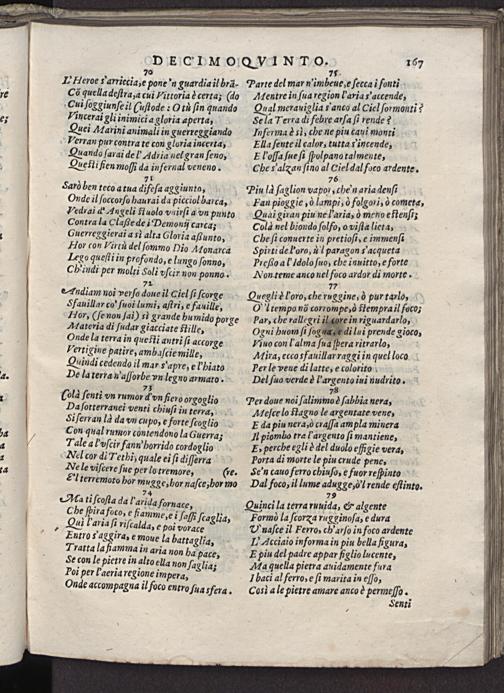 DECIMOQVINTO. 167
70
L'Heroe s'arriccia, e pone 'n guardia il brã-
Cõ quella destra, a cui Vittoria è certa; (do
Cui soggiunse il Custode: O tù sin quando
Vincerai gli inimici a gloria aperta,
Quei Marini animali in guerreggiando
Verran pur contra te con gloria incerta,
Quando sarai de l'Adria nel gran seno,
Questi sien mossi da infernal veneno.
71
Sarò ben teco a tua difesa aggiunto,
Onde il soccorso haurai da picciol barca,
Vedrai d'Angeli stuolo vnirsi a vn punto
Contra la Classe de i Demonij carca;
Guerreggierai a sì alta Gloria assunto,
Hor con Virtù del sommo Dio Monarca
Lego questi in profondo, e lungo sonno,
Ch'indi per molti Soli vscir non ponno.
72
Andiam noi verso doue il Ciel si scorge
Sfauillar co' suoi lumi, astri, e fauille,
Hor, (se non sai) sì grande humido porge
Materia di sudar giacciate stille,
Onde la terra in questi antri si accorge
Vertigine patire, ambascie mille,
Quindi cedendo il mar s'apre, e l'hiato
De la terra n'assorbe vn legno armato.
73
Colà senti vn rumor d'vn fiero orgoglio
Da sotterranei venti chiusi in terra,
Si serran là da vn cupo, e forte scoglio
Con qual rumor contendono la Guerra;
Tale a l'vscir fann'horrido cordoglio
Nel cor di Tethi, quale ei si disserra
Ne le viscere sue per lo tremore, (re.
E'l terremoto hor mugge, hor nasce, hor mo
74
Ma ti scosta da l'arida fornace,
Che spira foco, e fiamme, e i sassi scaglia,
Quì l'aria si riscalda, e poi vorace
Entro s'aggira, e moue la battaglia,
Tratta la fiamma in aria non ha pace,
Se con le pietre in alto ella non saglia;
Poi per l'aeria regione impera,
Onde accompagna il foco entro sua sfera.
75
Parte del mar n'imbeue, e secca i fonti
Mentre in sua region l'aria s'accende,
Qual merauiglia s'anco al Ciel formonti?
Se la Terra di febre arsa si rende?
Inferma è sì, che ne piu caui monti
Ella sente il calor, tutta s'incende,
E l'ossa sue si spolpano talmente,
Che s'alzan sino al Ciel dal foco ardente.
76
Piu là saglion vapor, che'n aria densi
Fan pioggie, ò lampi, ò folgori, ò cometa,
Quai giran piu ne l'aria, ò meno estensi;
Colà nel biondo solfo, o vista lieta,
Che si conuerte in pretiosi, e immensi
Spirti de l'oro, ù l paragon s'acqueta
Presso a l'Idolo suo, che inuitto, e forte
Non teme anco nel foco ardor di morte.
77
Quegli è l'oro, che ruggine, ò pur tarlo,
O'l tempo nõ corrompe, ò stempra il foco;
Par, che rallegri il core in riguardarlo,
Ogni huom si sogna, e di lui prende gioco,
Viuo con l'alma sua spera ritrarlo,
Mira, ecco sfauillar raggi in quel loco
Per le vene di latte, e colorito
Del suo verde è l'argento iui nudrito.
78
Per doue noi salimmo è sabbia nera,
Mesce lo stagno le argentate vene,
E da piu nera, ò crassa ampla minera
Il piombo tra l'argento si mantiene,
E, perche egli è del duolo effigie vera,
Porta di morte le piu crude pene,
Se'n cauo ferro chiuso, e fuor respinto
Dal foco, il lume adugge, ò'l rende estinto.
79
Quinci la terra ruuida, & algente
Formò la scorza rugginosa, e dura
V'nasce il Ferro, ch'arso in foco ardente
L'Acciaio informa in piu bella figura,
E piu del padre appar figlio lucente,
Ma quella pietra auidamente fura
I baci al ferro, e si marita in esso,
Così a le pietre amare anco è permesso.
Senti